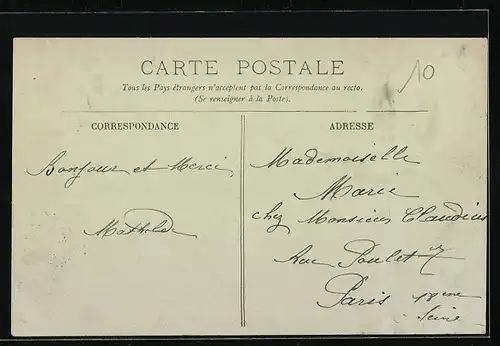 CARTE POSTALE
Tous les Pays étrangers n'acceptent pas la Correspondance au recto.
(Se renseigner à la Poste).
10
CORRESPONDANCE
Bonjour et Merci
Mathilde
ADRESSE
Mademoiselle
Marie
chez Monsieur Claudius
Rue Poulet 7
Paris 18eme
Seine